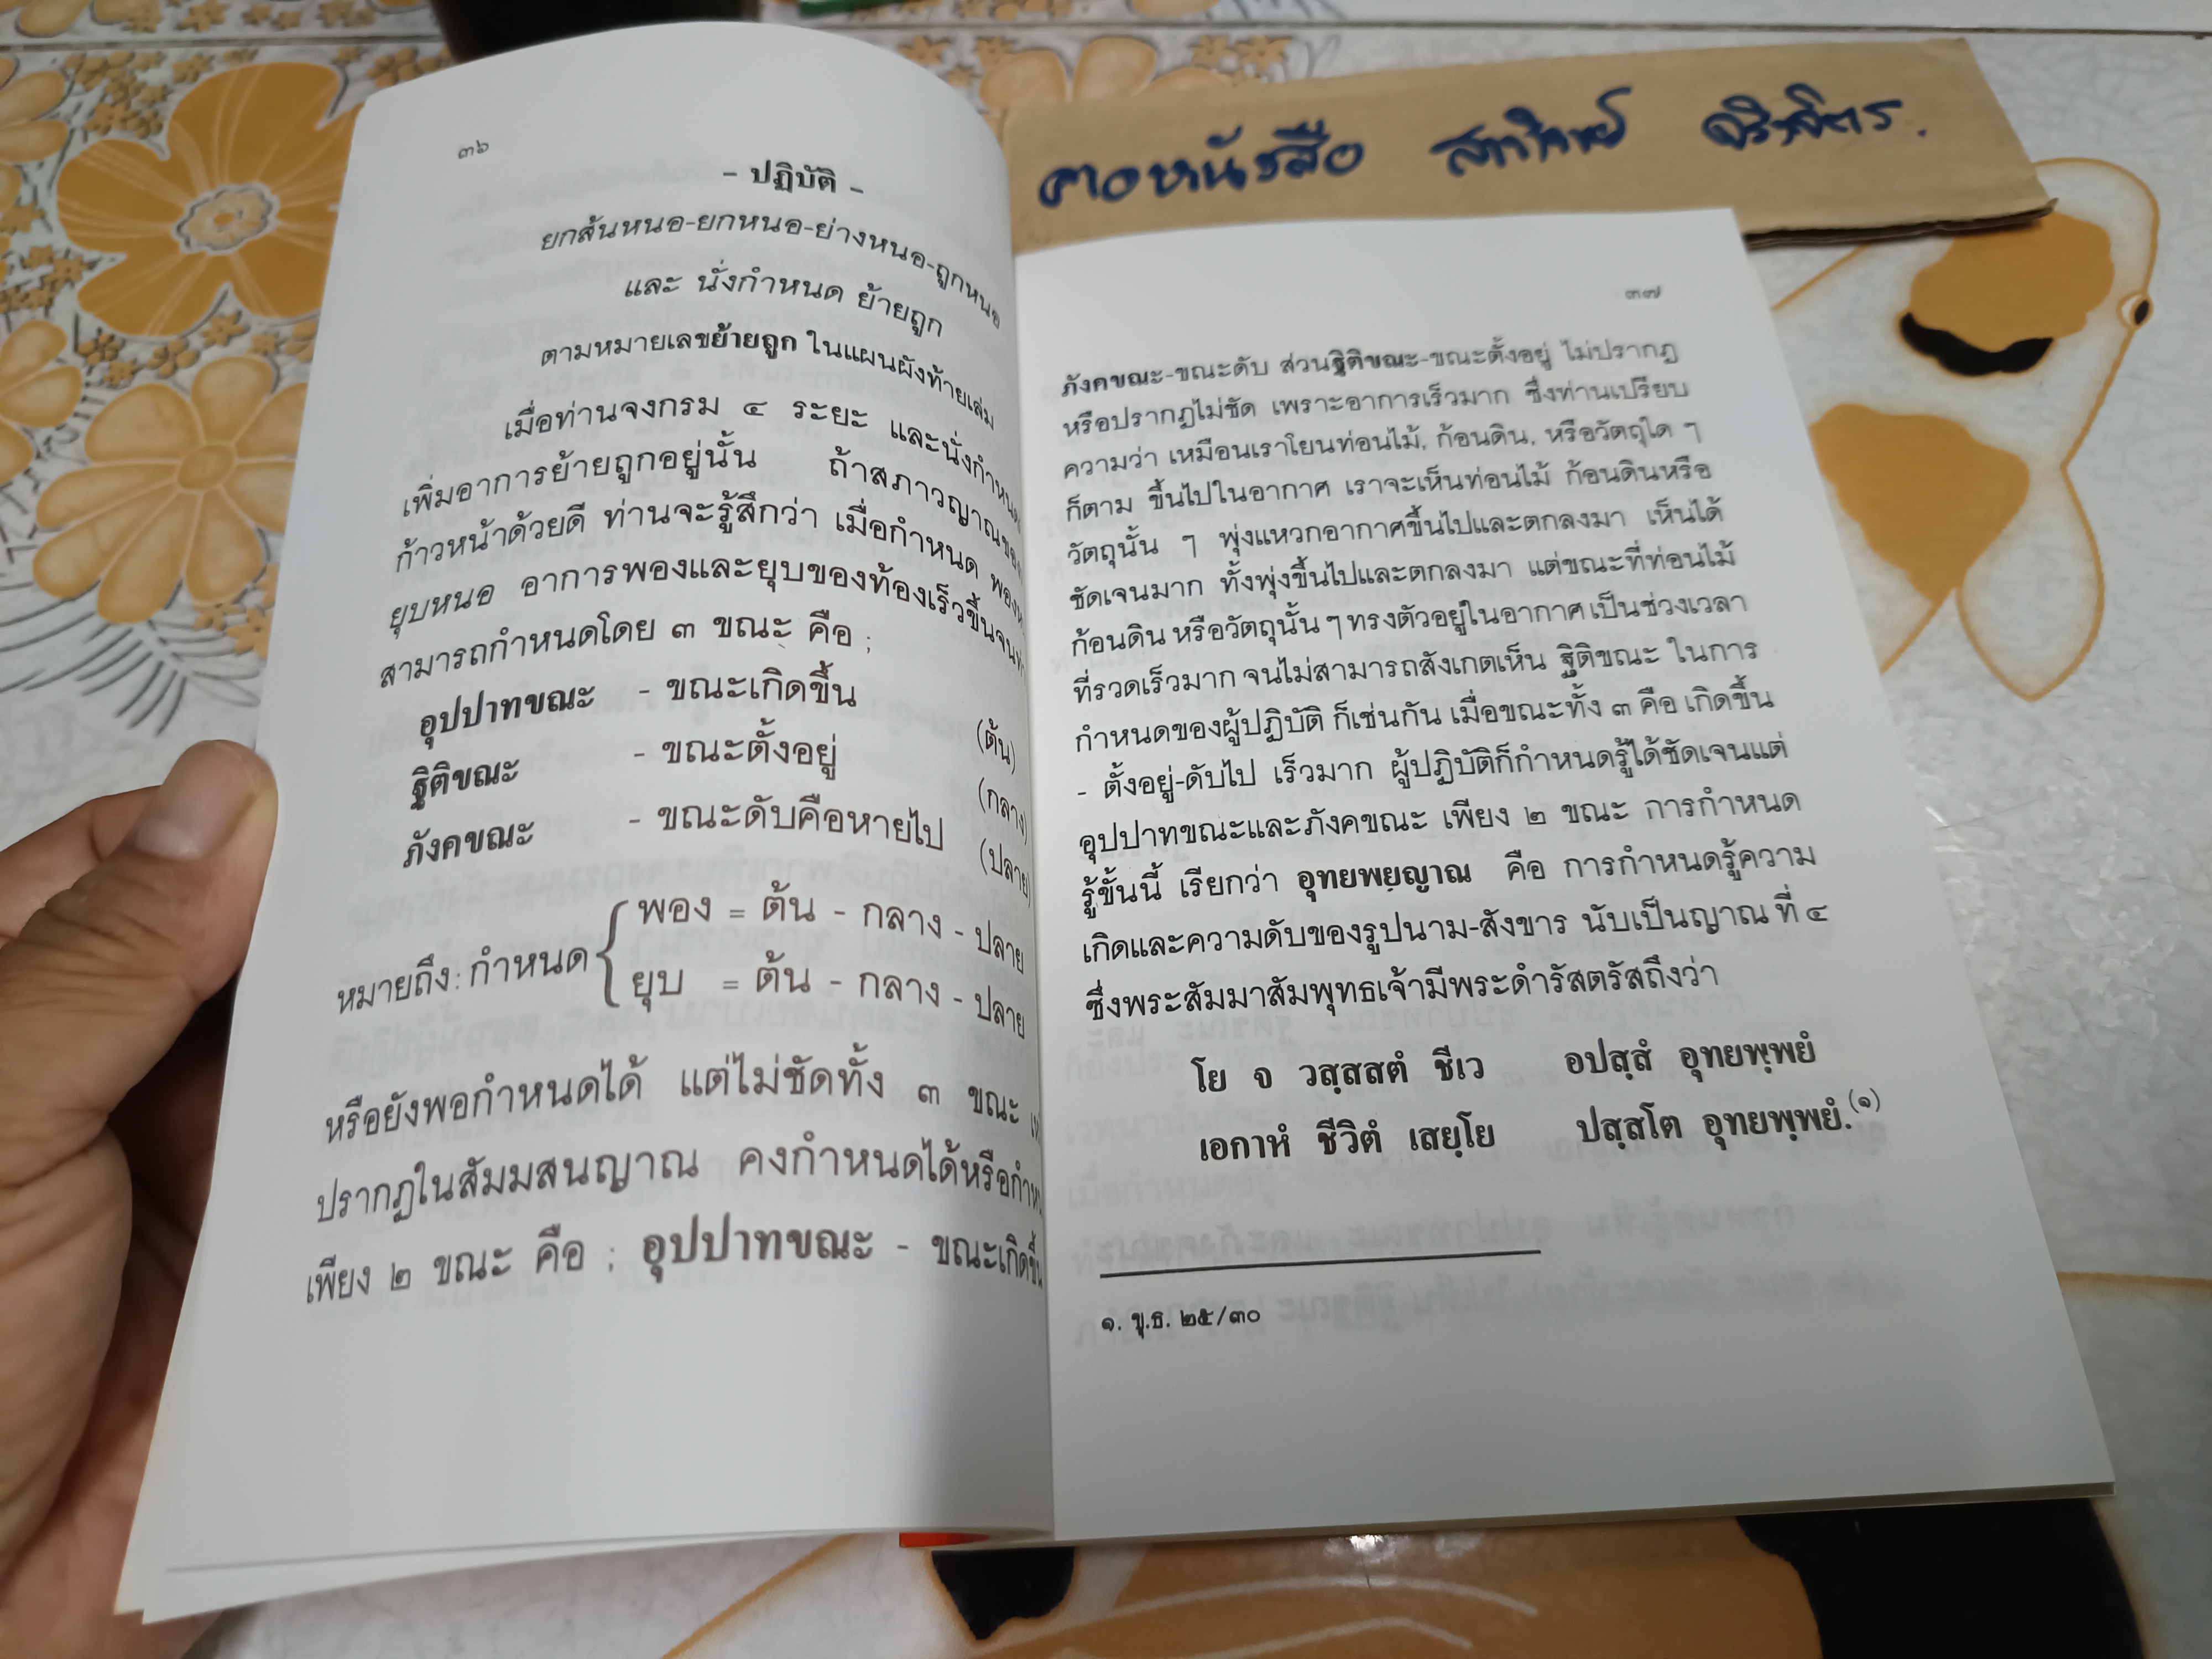 ๓๖
- ปฏิบัติ -
ยกส้นหนอ-ยกหนอ-ย่างหนอ-ถูกหนอ
และ นั่งกำหนด ย้ายถูก
ตามหมายเลขย้ายถูก ในแผนผังท้ายเล่ม
เมื่อท่านจงกรม ๔ ระยะ และนั่งกำหนด
เพิ่มอาการย้ายถูกอยู่นั้น ถ้าสภาวญาณของ
ก้าวหน้าด้วยดี ท่านจะรู้สึกว่า เมื่อกำหนด
ยุบหนอ อาการพองและยุบของท้องเร็วขึ้นจน
สามารถกำหนดโดย ๓ ขณะ คือ ;
อุปปาทขณะ - ขณะเกิดขึ้น (ต้น)
ฐิติขณะ - ขณะตั้งอยู่ (กลาง)
ภังคขณะ - ขณะดับคือหายไป (ปลาย)
หมายถึง : กำหนด { พอง = ต้น - กลาง - ปลาย
ยุบ = ต้น - กลาง - ปลาย
หรือยังพอกำหนดได้ แต่ไม่ชัดทั้ง ๓ ขณะ
ปรากฏในสัมมสนญาณ คงกำหนดได้หรือ
เพียง ๒ ขณะ คือ ; อุปปาทขณะ - ขณะเกิดขึ้น
คอหนังสือ
๓๗
ภังคขณะ-ขณะดับ ส่วนฐิติขณะ-ขณะตั้งอยู่ ไม่ปรากฏ
หรือปรากฏไม่ชัด เพราะอาการเร็วมาก ซึ่งท่านเปรียบ
ความว่า เหมือนเราโยนท่อนไม้, ก้อนดิน, หรือวัตถุใด ๆ
ก็ตาม ขึ้นไปในอากาศ เราจะเห็นท่อนไม้ ก้อนดินหรือ
วัตถุนั้น ๆ พุ่งแหวกอากาศขึ้นไปและตกลงมา เห็นได้
ชัดเจนมาก ทั้งพุ่งขึ้นไปและตกลงมา แต่ขณะที่ท่อนไม้
ก้อนดิน หรือวัตถุนั้น ๆ ทรงตัวอยู่ในอากาศเป็นช่วงเวลา
ที่รวดเร็วมาก จนไม่สามารถสังเกตเห็น ฐิติขณะ ในการ
กำหนดของผู้ปฏิบัติ ก็เช่นกัน เมื่อขณะทั้ง ๓ คือ เกิดขึ้น
- ตั้งอยู่-ดับไป เร็วมาก ผู้ปฏิบัติก็กำหนดรู้ได้ชัดเจนแต่
อุปปาทขณะและภังคขณะ เพียง ๒ ขณะ การกำหนด
รู้ขั้นนี้ เรียกว่า อุทยพยญาณ คือ การกำหนดรู้ความ
เกิดและความดับของรูปนาม-สังขาร นับเป็นญาณ ที่ ๔
ซึ่งพระสัมมาสัมพุทธเจ้ามีพระดำรัสตรัสถึงว่า
โย จ วสฺสสตํ ชีเว อปสฺสํ อุทยพฺพยํ
เอกาหํ ชีวิตํ เสยฺโย ปสฺสโต อุทยพฺพยํ.(๑)
๑. ขุ.ธ. ๒๕/๓๐